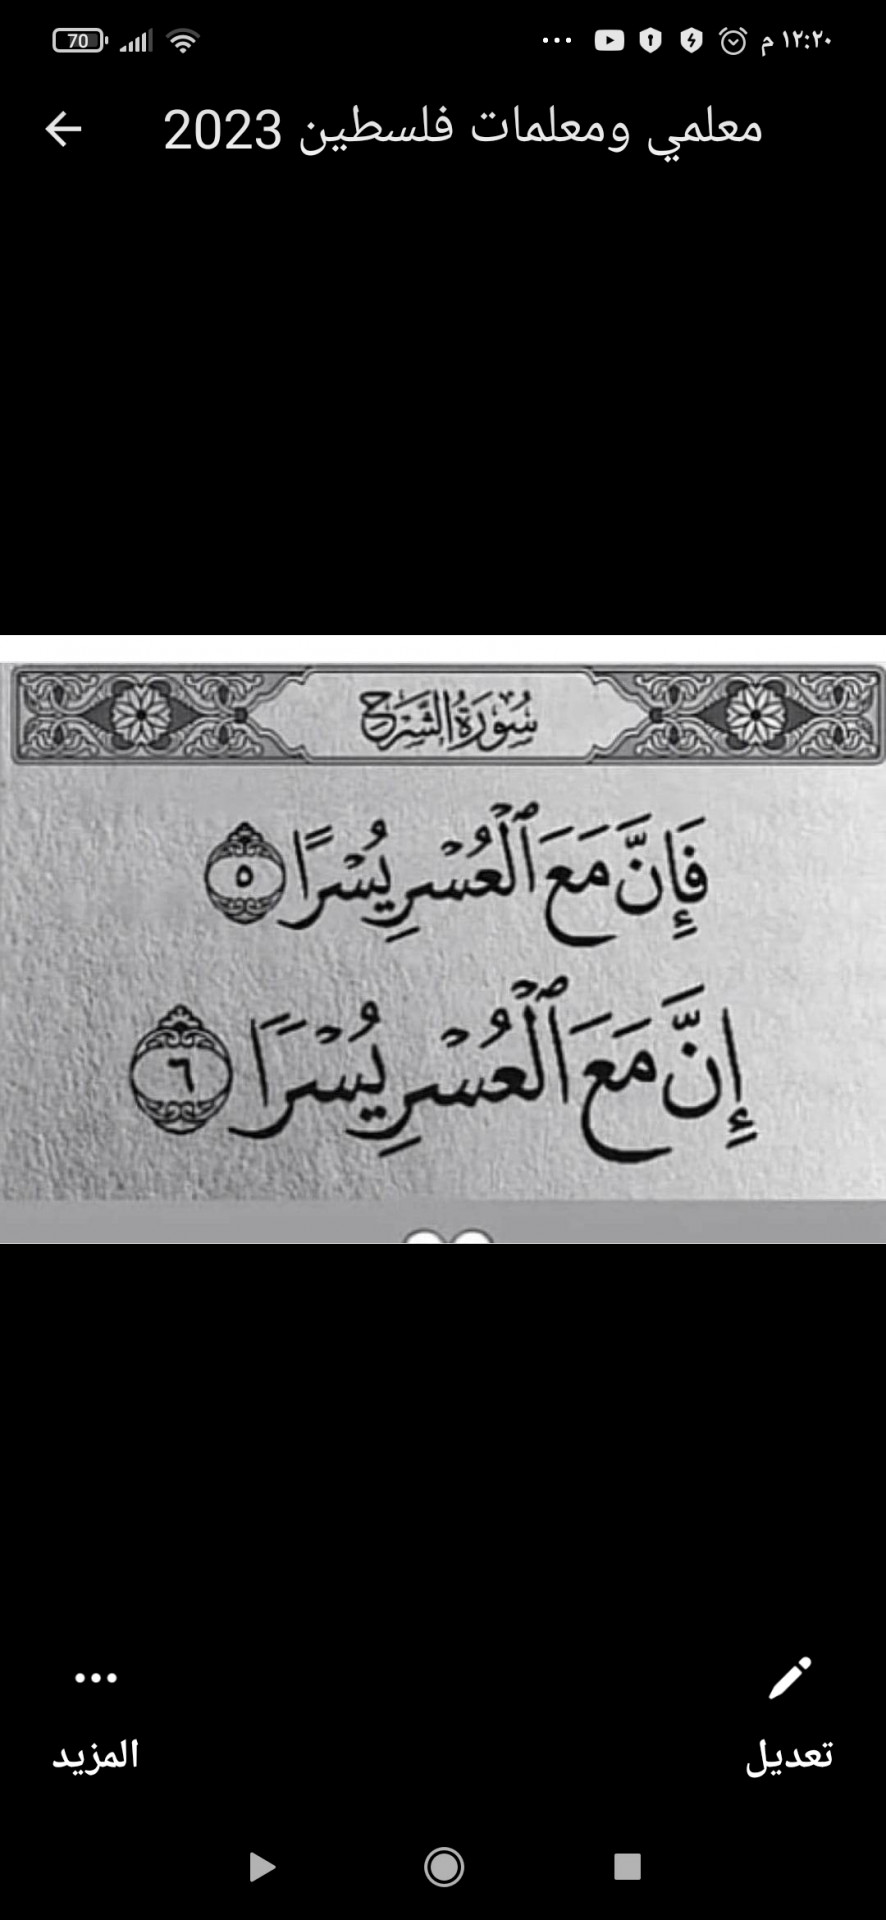 70 ... ١٢:٢٠ م
معلمي ومعلمات فلسطين 2023
سُورَةُ الشَّرْحِ
فَإِنَّ مَعَ ٱلْعُسْرِ يُسْرًا ٥
إِنَّ مَعَ ٱلْعُسْرِ يُسْرًا ٦
تعديل
المزيد